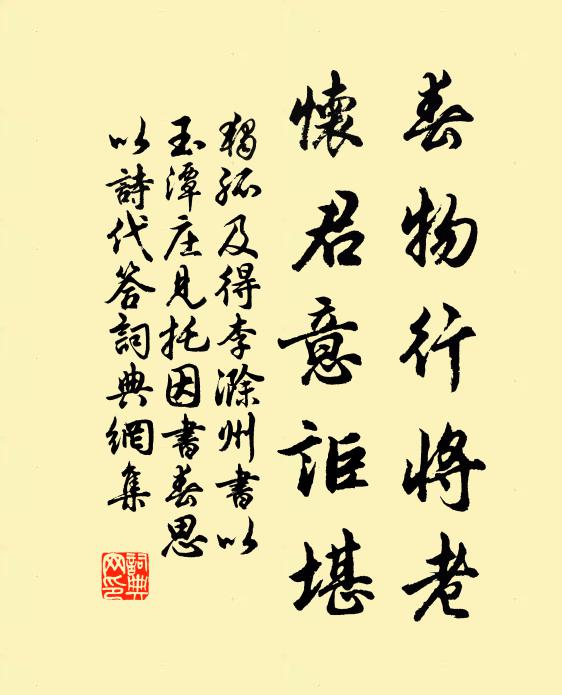 春物行将老
懷君意詎堪
獨孤及得李滁州書以
玉潭庄見托因書春思
以詩代答詞典網集
詞典
网印